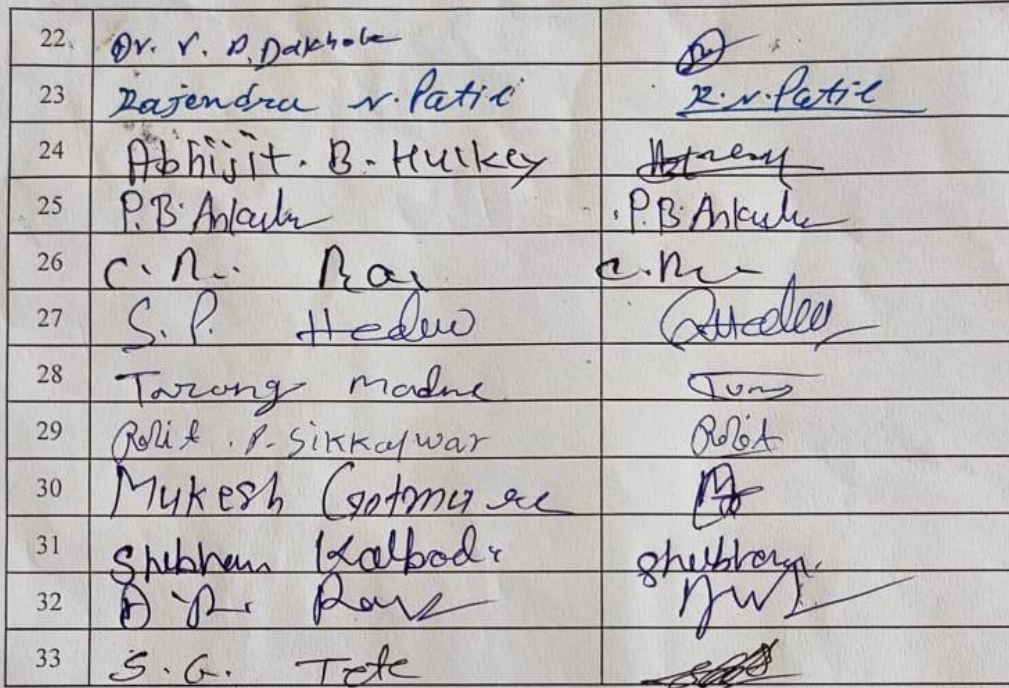 22 Dr. V. D. Dakhole
23 Rajendra N. Patil R. N. Patil
24 Abhijit. B. Hulkey
25 P.B. Ankulu P.B. Ankulu
26 C. R. Rai C. R.
27 S. P. Hedau
28 Tarang Madne
29 Rohit . P. Sikkalwar Rohit
30 Mukesh Gotmare
31 Shubham Kalbodi Shubham
32
33 S. G. Tete